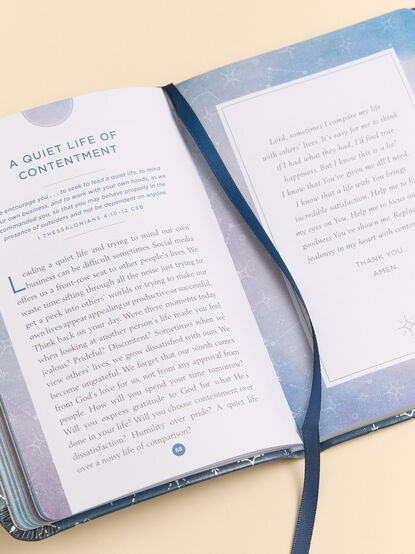 A QUIET LIFE OF
CONTENTMENT
encourage you . . . to seek to lead a quiet life, to mind
your own business, and to work with your own hands, as we
commanded you, so that you may behave properly in the
presence of outsiders and not be dependent on anyone.
1 THESSALONIANS 4:10–12 CSB
Leading a quiet life and trying to mind our own
business can be difficult sometimes. Social media
offers us a front-row seat to other people's lives. We
waste time sifting through all the noise just trying to
get a peek into others' worlds or trying to make our
own lives appear appealing or productive or successful.
Think back on your day. Were there moments today
when looking at another person's life made you feel
jealous? Prideful? Discontent? Sometimes when we
view others' lives, we grow dissatisfied with ours. We
become ungrateful. We forget that our worth comes
from God's love for us, not from any approval from
people. How will you spend your time tomorrow?
Will you express gratitude to God for what He's
done in your life? Will you choose contentment over
dissatisfaction? Humility over pride? A quiet life
over a noisy life of comparison?
68
Lord, sometimes I compare my life
with others' lives. It's easy for me to think
if I had what they had, I'd find true
happiness. But I know this is a lie?
I know that You've given me all I need.
I know that a life with You brings
incredible satisfaction. Help me to fix
my eyes on You. Help me to focus on
goodness You've shown me. Replace
jealousy in my heart with content
THANK YOU.
AMEN.